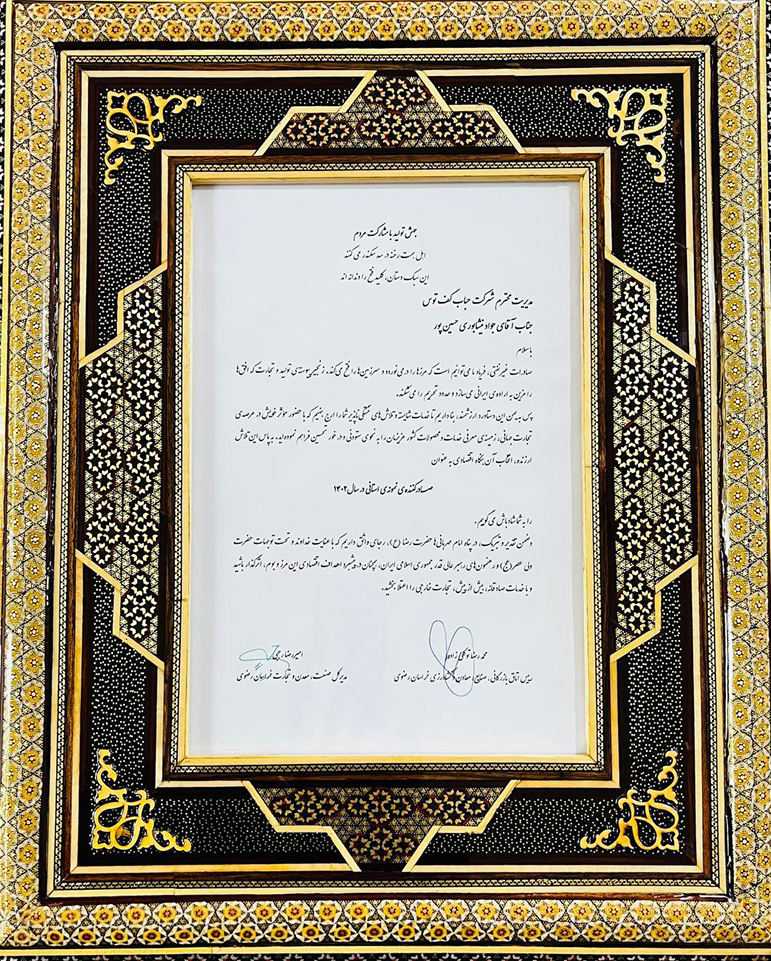 جهش تولید با مشارکت مردم
اهل همت رخنه در سد سکندر می کنند
این سبک دستان، کلید فتح را دندانه اند
مدیریت محترم شرکت حباب کف توس
جناب آقای جواد نیشابوری حسین پور
با سلام
صادرات غیرنفتی، فریاد ما می توانیم است که مرزها را در می نوردد و سرزمین ها را فتح می کند. زنجیر پیوسته ی تولید و تجارت که افق ها
را مزین به اراده ی ایرانی می سازد و حدود تحریم را می شکند.
پس به یمن این دستاورد ارزشمند، بنا داریم تا خدمات شایسته و تلاش های خستگی ناپذیر شما را ارج بنهیم که با حضور مؤثر خویش در عرصه ی
تجارت جهانی، زمینه ی معرفی خدمات و محصولات کشور عزیزمان را به نحوی ستودنی و در خور تحسین فراهم نموده اید. به پاس این تلاش
ارزنده، انتخاب آن بنگاه اقتصادی به عنوان
صادر کننده ی نمونه ی استانی در سال ۱۴۰۲
را به شما شادباش می گوییم.
و ضمن تقدیر و تبریک، در پناه امام مهربانی ها حضرت رضا (ع)، رجای واثق داریم که با عنایت خداوند و تحت توجهات حضرت
ولی عصر (عج) و رهنمون های رهبر عالی قدر جمهوری اسلامی ایران، همچنان در پیشبرد اهداف اقتصادی این مرز و بوم، اثرگذار باشید
و با خدمات صادقانه، بیش از پیش، تجارت خارجی را اعتلا بخشید.
محمد رضا توکلی زاده
رییس اتاق بازرگانی، صنایع، معادن و کشاورزی خراسان رضوی
امیر رضا رجبی
مدیر کل صنعت، معدن و تجارت خراسان رضوی